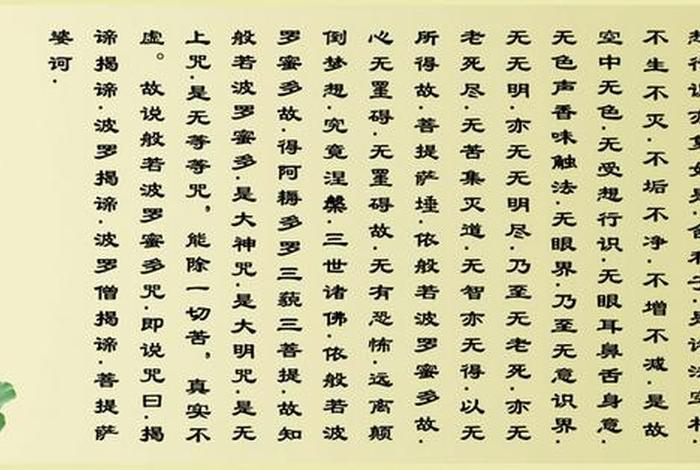 不生不灭·不垢不净·不增不减·是故
空中无色·无受想行识·无眼耳鼻舌身意·
无色声香味触法·无眼界·乃至无意识界·
无无明·亦无无明尽·乃至无老死·亦无
老死尽·无苦集灭道·无智亦无得·以无
所得故·菩提萨埵·依般若波罗蜜多故·
心无罣碍·无罣碍故·无有恐怖·远离颠
倒梦想·究竟涅槃·三世诸佛·依般若波
罗蜜多故·得阿耨多罗三藐三菩提·故知
般若波罗蜜多·是大神咒·是大明咒·是无
上咒·是无等等咒，能除一切苦，真实不
虚。故说般若波罗蜜多咒·即说咒曰·揭
谛揭谛·波罗揭谛·波罗僧揭谛·菩提萨
婆诃·